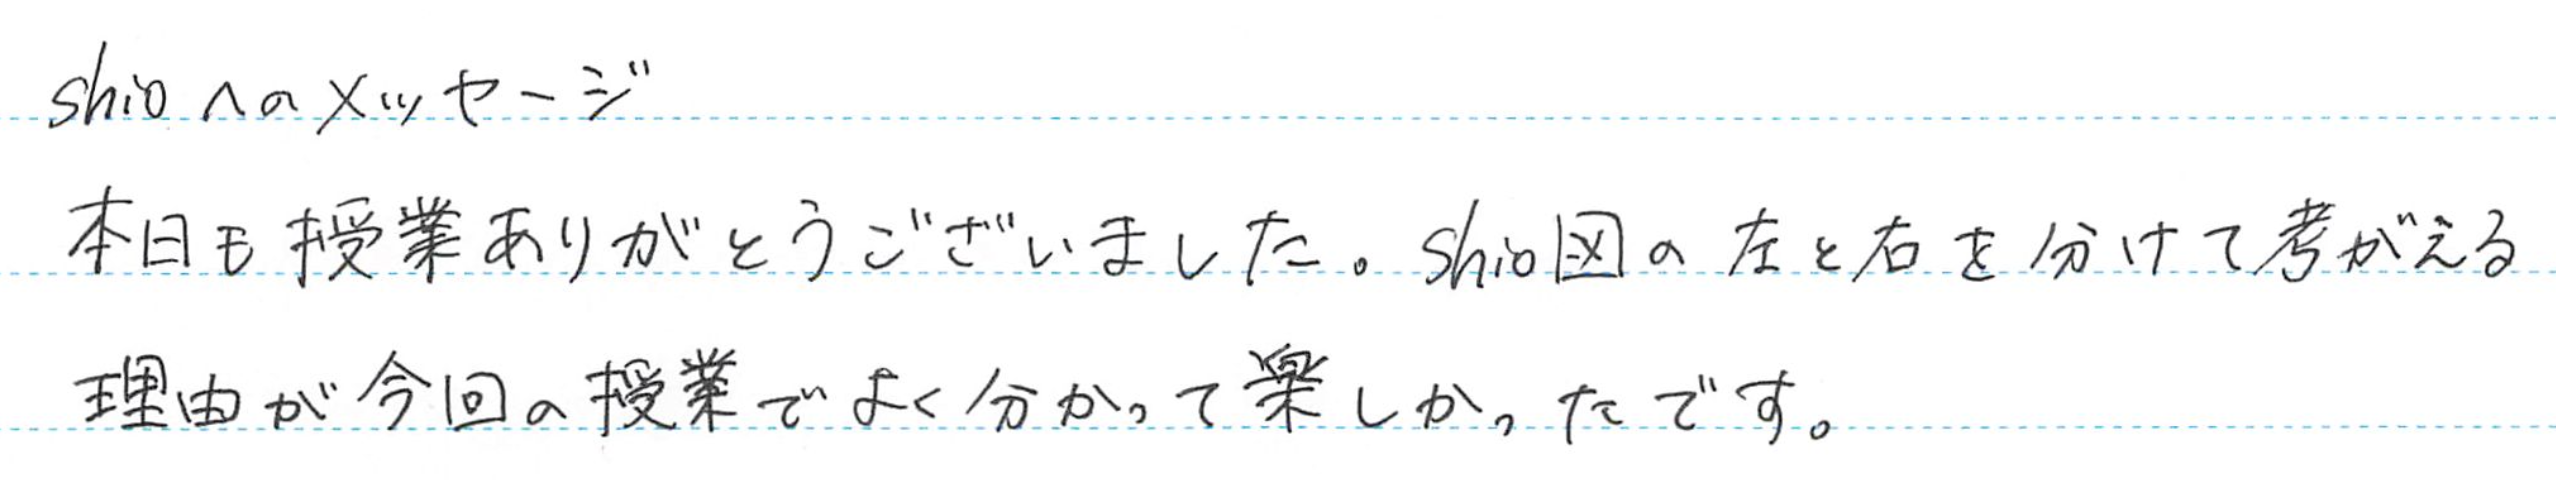 shioへのメッセージ
本日も授業ありがとうございました。shio図の左と右を分けて考がえる
理由が今回の授業でよく分かって楽しかったです。